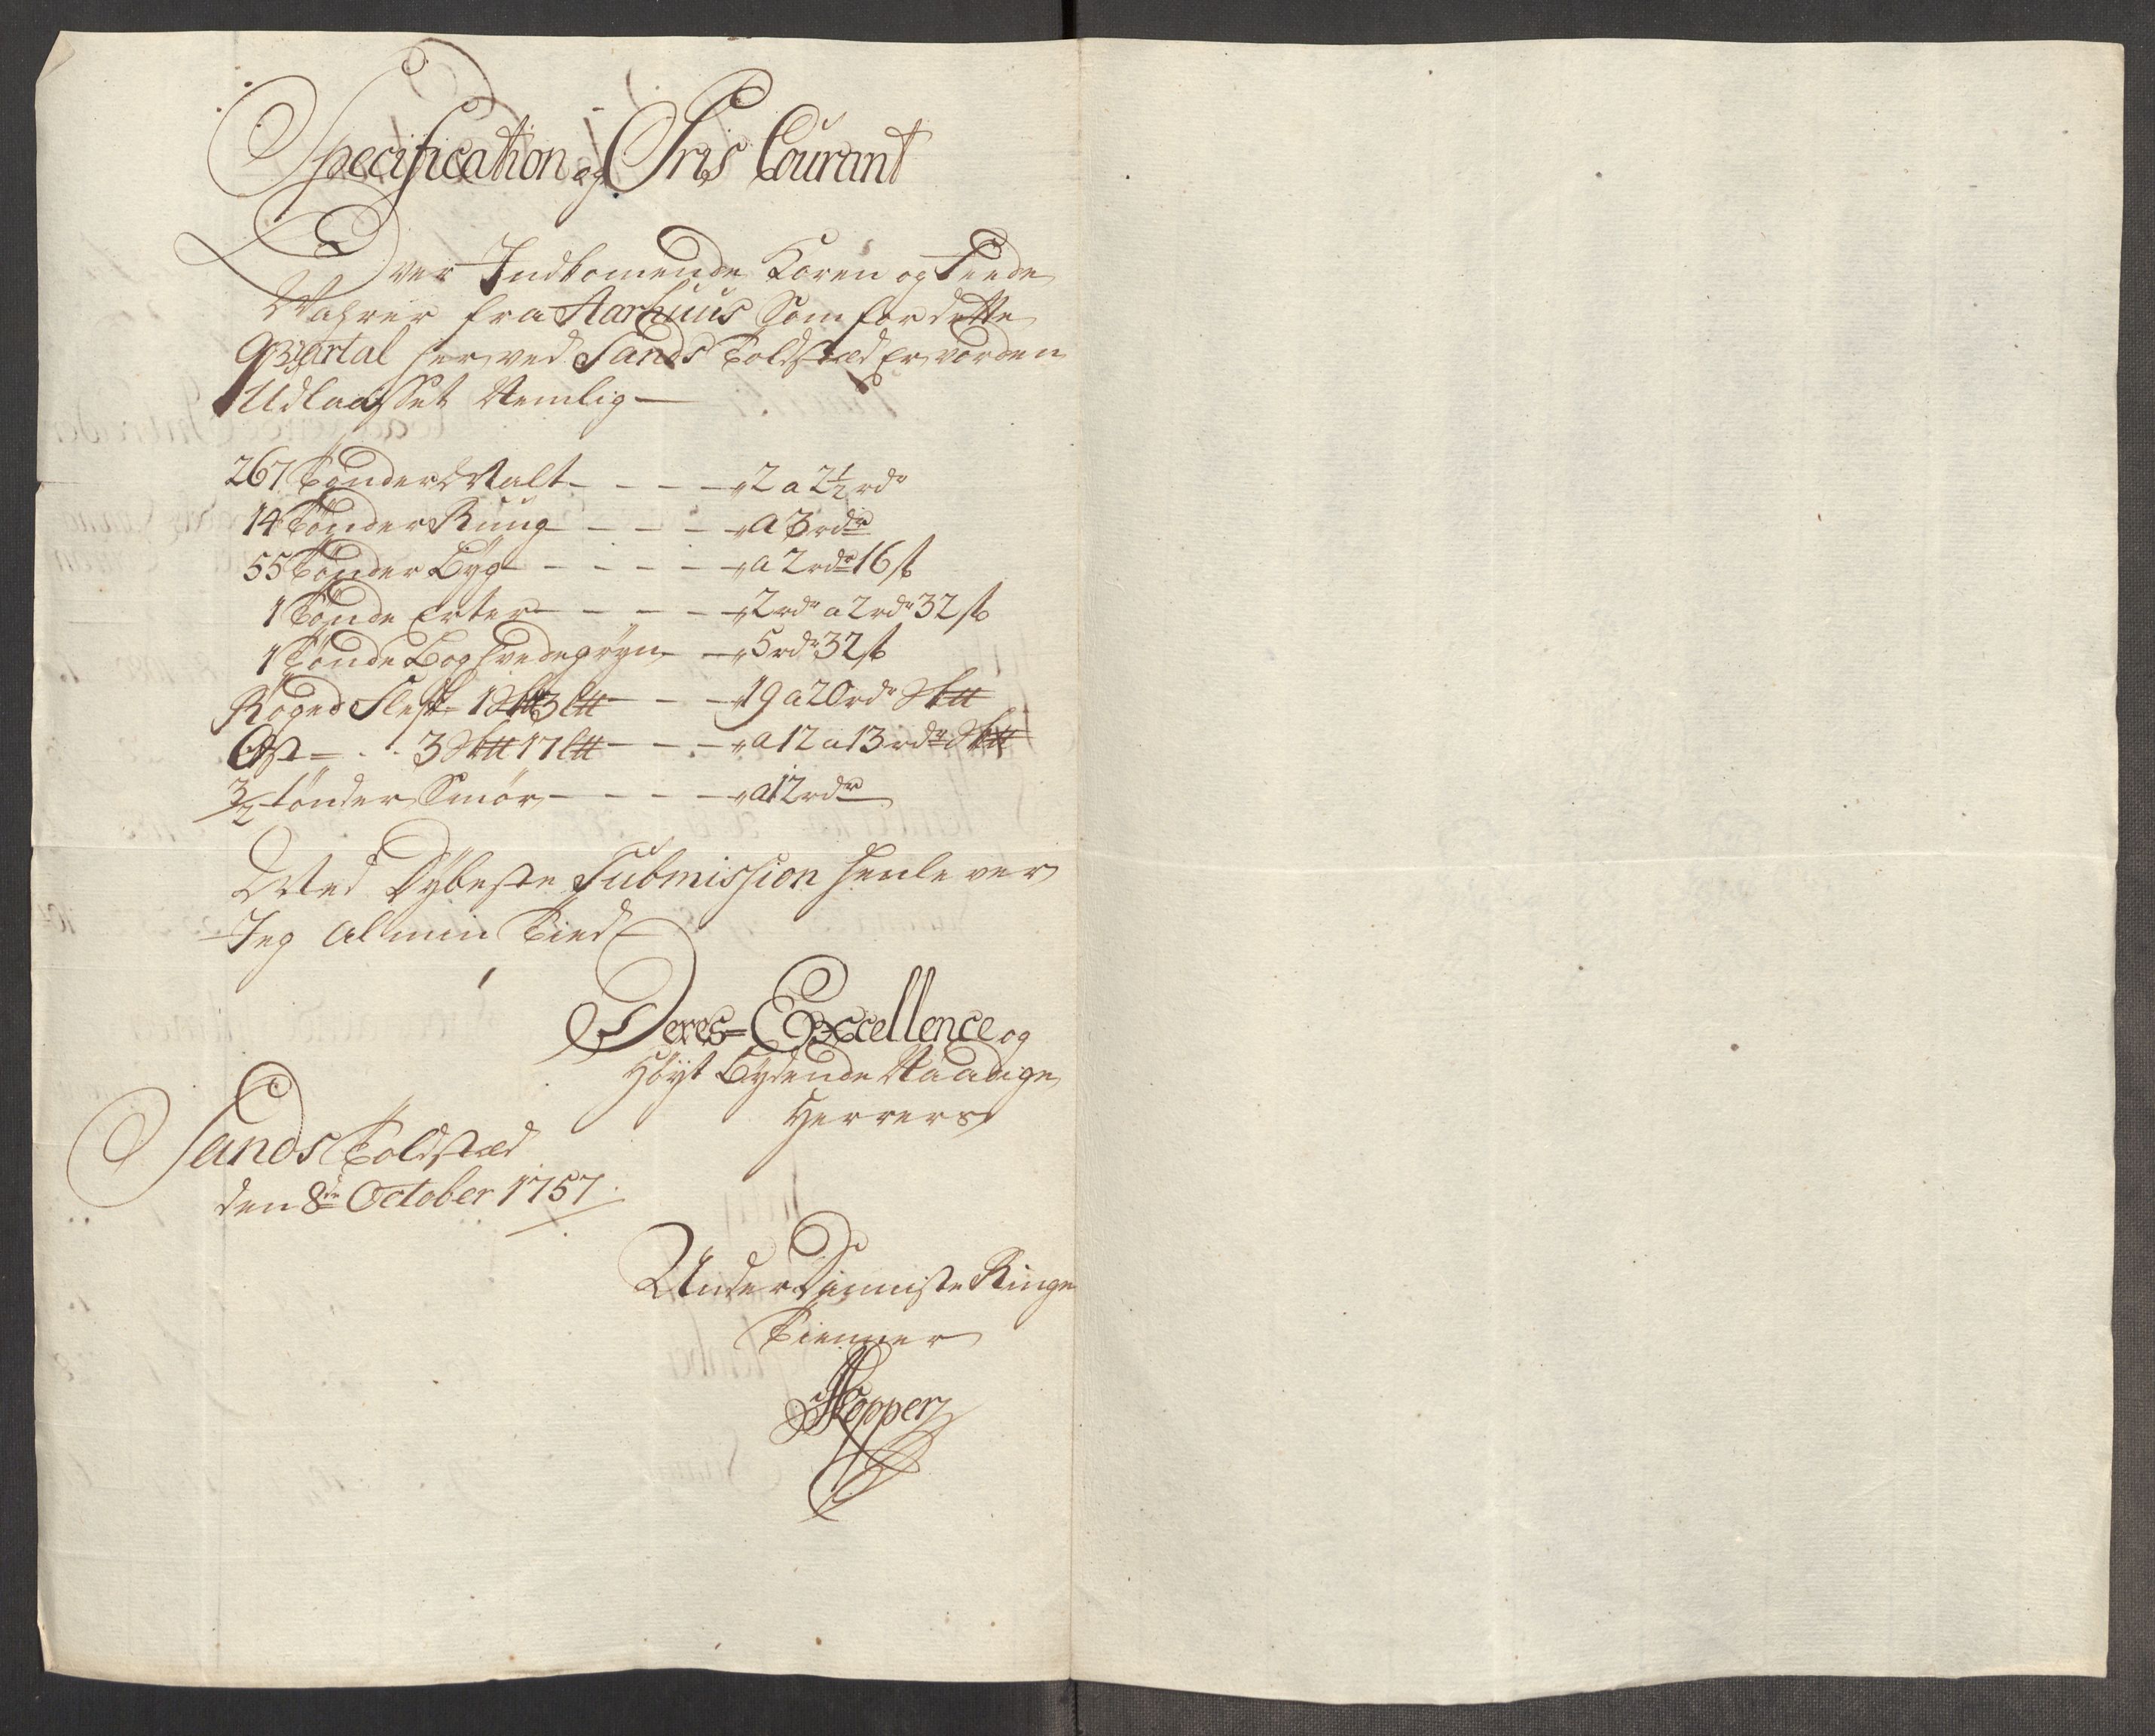 Specification og Pris Courant
Over Indkomende Koren og Feede
Wahrer fra Aarhuus Som for dette
Qvartal her ved Sands Toldsted Er vorden
Udlosset Nemlig —
267 Tønder Malt - - - - 2 a 2½ rdr
14 Tønder Ruug - - - - a 3 rdr
55 Tønder Byg - - - - - a 2 rdr 16 s
1 Tønde Erter - - - - 2 rdr a 2 rdr 32 s
1 Tønde Boghvedegryn - - 5 rdr 32 s
Røged Flesk - 1 Sk℔ 3 L℔ - - - 19 a 20 rdr Sk℔
Ost = . . 3 Sk℔ 17 L℔ - - - a 12 a 13 rdr Sk℔
3/2 tønder Smør - - - - a 12 rdr
Med Dybeste Submission henlever
Jeg al min Tied
Deres Excellence og
Høyt Bydende Naadige
Herrers
Sands Toldsted
den 8de October 1757
Underdanniste Ringe
Tienner